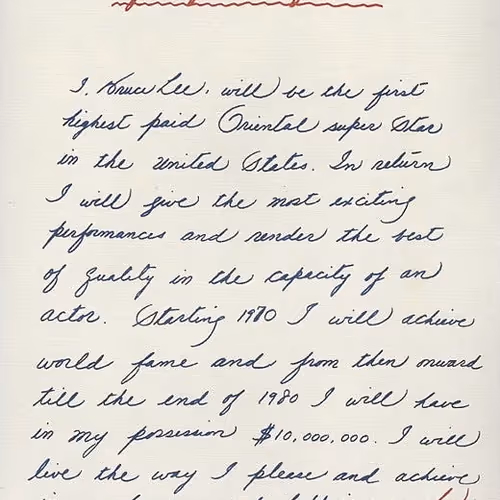 I, Bruce Lee, will be the first
highest paid Oriental super star
in the united states. In return
I will give the most exciting
performances and render the best
of quality in the capacity of an
actor. Starting 1970 I will achieve
world fame and from then onward
till the end of 1980 I will have
in my possession $10,000,000. I will
live the way I please and achieve